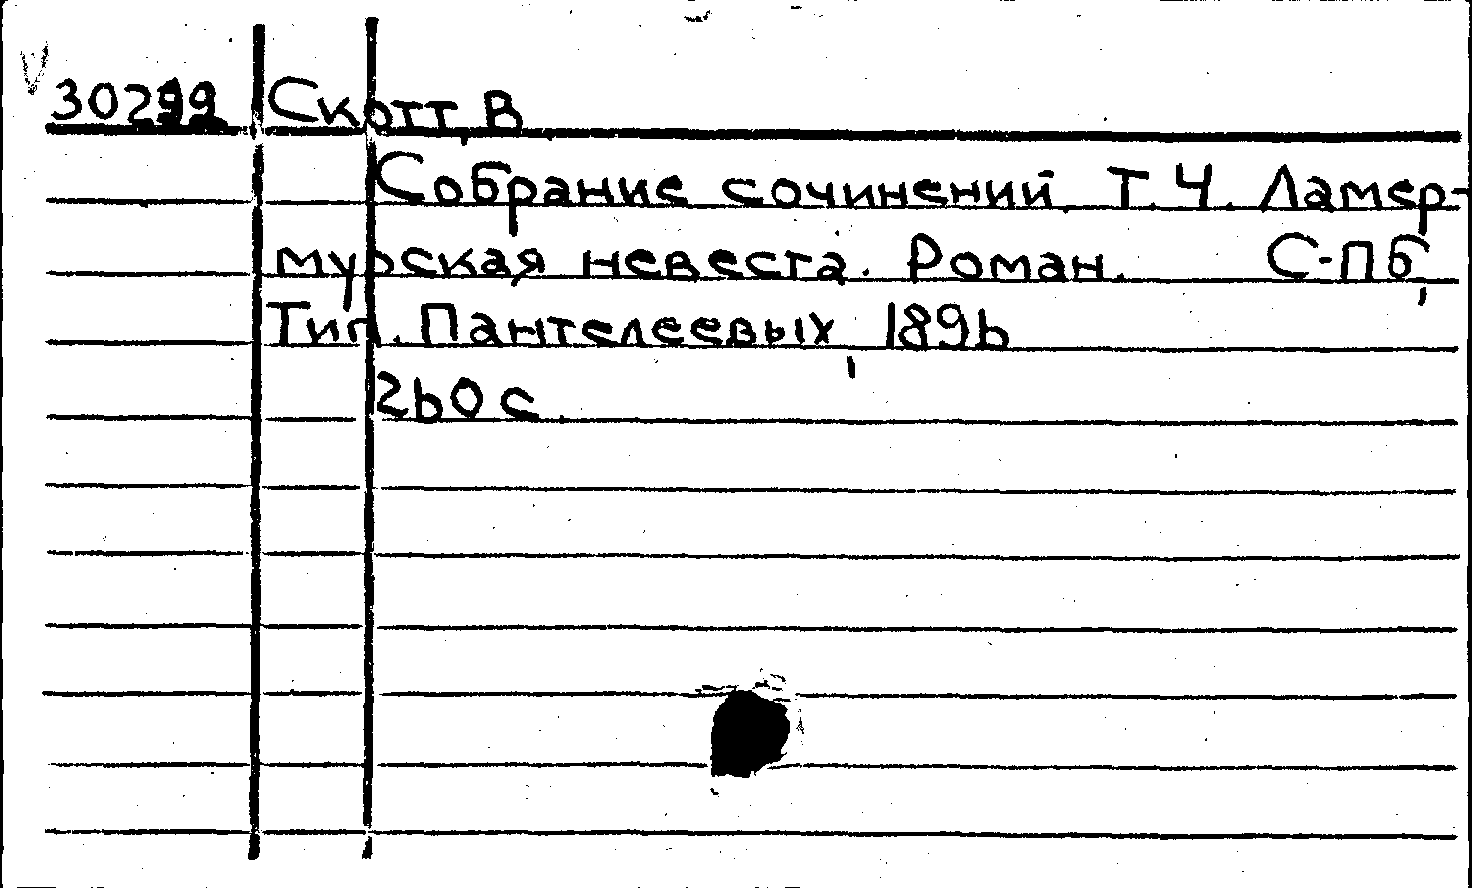 30299 Скотт, В.
Собрание сочинений. Т. 4. Ламер-
мурская невеста. Роман. С-ПБ,
Тип. Пантелеевых, 1896
260 с.